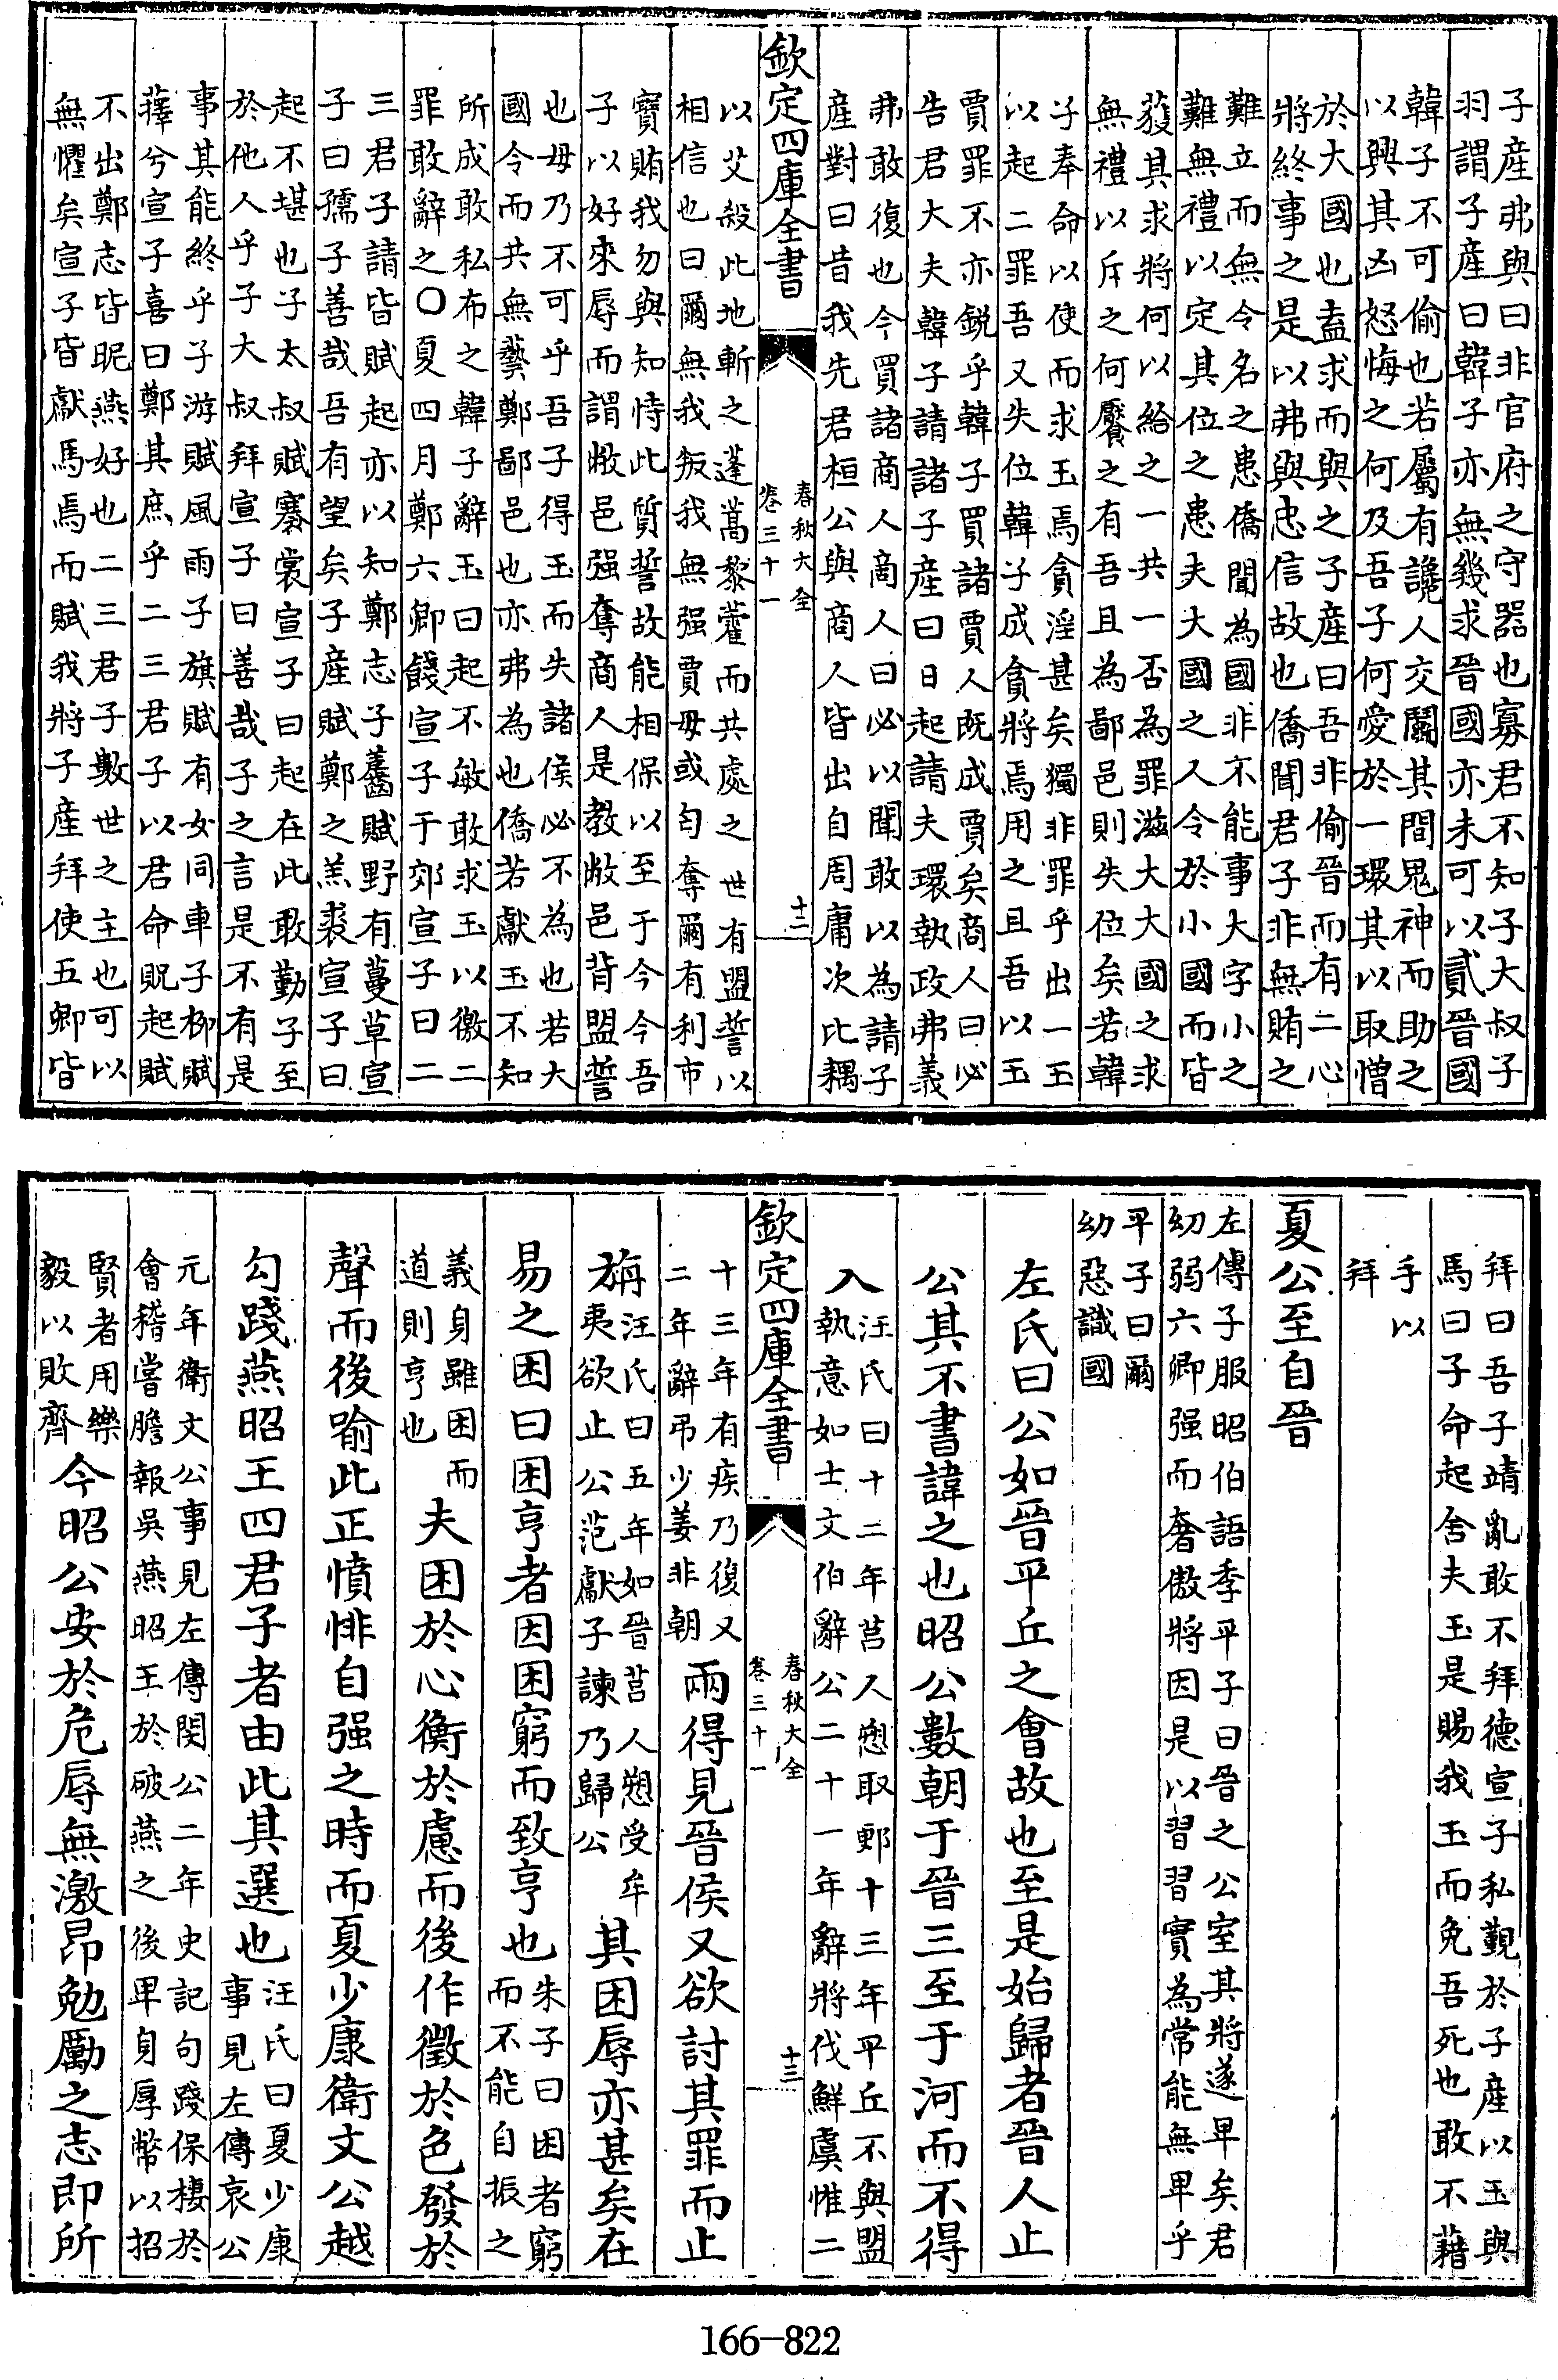 子產弗與曰非官府之守器也寡君不知子大叔子
羽謂子產曰韓子亦無幾求晉國亦未可以貳晉國
韓子不可偷也若屬有讒人交鬬其間鬼神而助之
以興其凶怒悔之何及吾子何愛於一環其以取憎
於大國也盍求而與之子產曰吾非偷晉而有二心
將終事之是以弗與忠信故也僑聞君子非無賄之
難立而無令名之患僑聞為國非不能事大字小之
難無禮以定其位之患夫大國之人令於小國而皆
獲其求將何以給之一共一否為罪滋大大國之求
無禮以斥之何饜之有吾且為鄙邑則失位矣若韓
子奉命以使而求玉焉貪淫甚矣獨非罪乎出一玉
以起二罪吾又失位韓子成貪將焉用之且吾以玉
賈罪不亦鋭乎韓子買諸賈人既成賈矣商人曰必
告君大夫韓子請諸子產曰日起請夫環執政弗義
弗敢復也今買諸商人商人曰必以聞敢以為請子
產對曰昔我先君桓公與商人皆出自周庸次比耦
欽定四庫全書
春秋大全
卷三十一
十二
以艾殺此地斬之蓬蒿藜藿而共處之世有盟誓以
相信也曰爾無我叛我無强賈毋或匄奪爾有利市
寶賄我勿與知恃此質誓故能相保以至于今今吾
子以好來辱而謂敝邑强奪商人是教敝邑背盟誓
也毋乃不可乎吾子得玉而失諸侯必不為也若大
國令而共無藝鄭鄙邑也亦弗為也僑若獻玉不知
所成敢私布之韓子辭玉曰起不敏敢求玉以徼二
罪敢辭之○夏四月鄭六卿餞宣子于郊宣子曰二
三君子請皆賦起亦以知鄭志子齹賦野有蔓草宣
子曰孺子善哉吾有望矣子產賦鄭之羔裘宣子曰
起不堪也子太叔賦褰裳宣子曰起在此敢勤子至
於他人乎子大叔拜宣子曰善哉子之言是不有是
事其能終乎子游賦風雨子旗賦有女同車子柳賦
蘀兮宣子喜曰鄭其庶乎二三君子以君命貺起賦
不出鄭志皆昵燕好也二三君子數世之主也可以
無懼矣宣子皆獻馬焉而賦我將子產拜使五卿皆
拜曰吾子靖亂敢不拜德宣子私覿於子產以玉與
馬曰子命起舍夫玉是賜我玉而免吾死也敢不藉
手以
拜
夏公至自晉
左傳子服昭伯語季平子曰晉之公室其將遂卑矣君
幼弱六卿强而奢傲將因是以習習實為常能無卑乎
平子曰爾
幼惡識國
左氏曰公如晉平丘之會故也至是始歸者晉人止
公其不書諱之也昭公數朝于晉三至于河而不得
入汪氏曰十二年莒人愬取郠十三年平丘不與盟
執意如士文伯辭公二十一年辭將伐鮮虞惟二
欽定四庫全書
春秋大全
卷三十一
十三
十三年有疾乃復又
二年辭弔少姜非朝兩得見晉侯又欲討其罪而止
旃汪氏曰五年如晉莒人愬受牟
夷欲止公范獻子諫乃歸公其困辱亦甚矣在
易之困曰困亨者因困窮而致亨也朱子曰困者窮
而不能自振之
義身雖困而
道則亨也夫困於心衡於慮而後作徵於色發於
聲而後喻此正憤悱自强之時而夏少康衛文公越
勾踐燕昭王四君子者由此其選也汪氏曰夏少康
事見左傳哀公
元年衛文公事見左傳閔公二年史記句踐保棲於
會稽嘗膽報吳燕昭王於破燕之後卑身厚幣以招
賢者用樂
毅以敗齊今昭公安於危辱無激昂勉勵之志即所
166-822